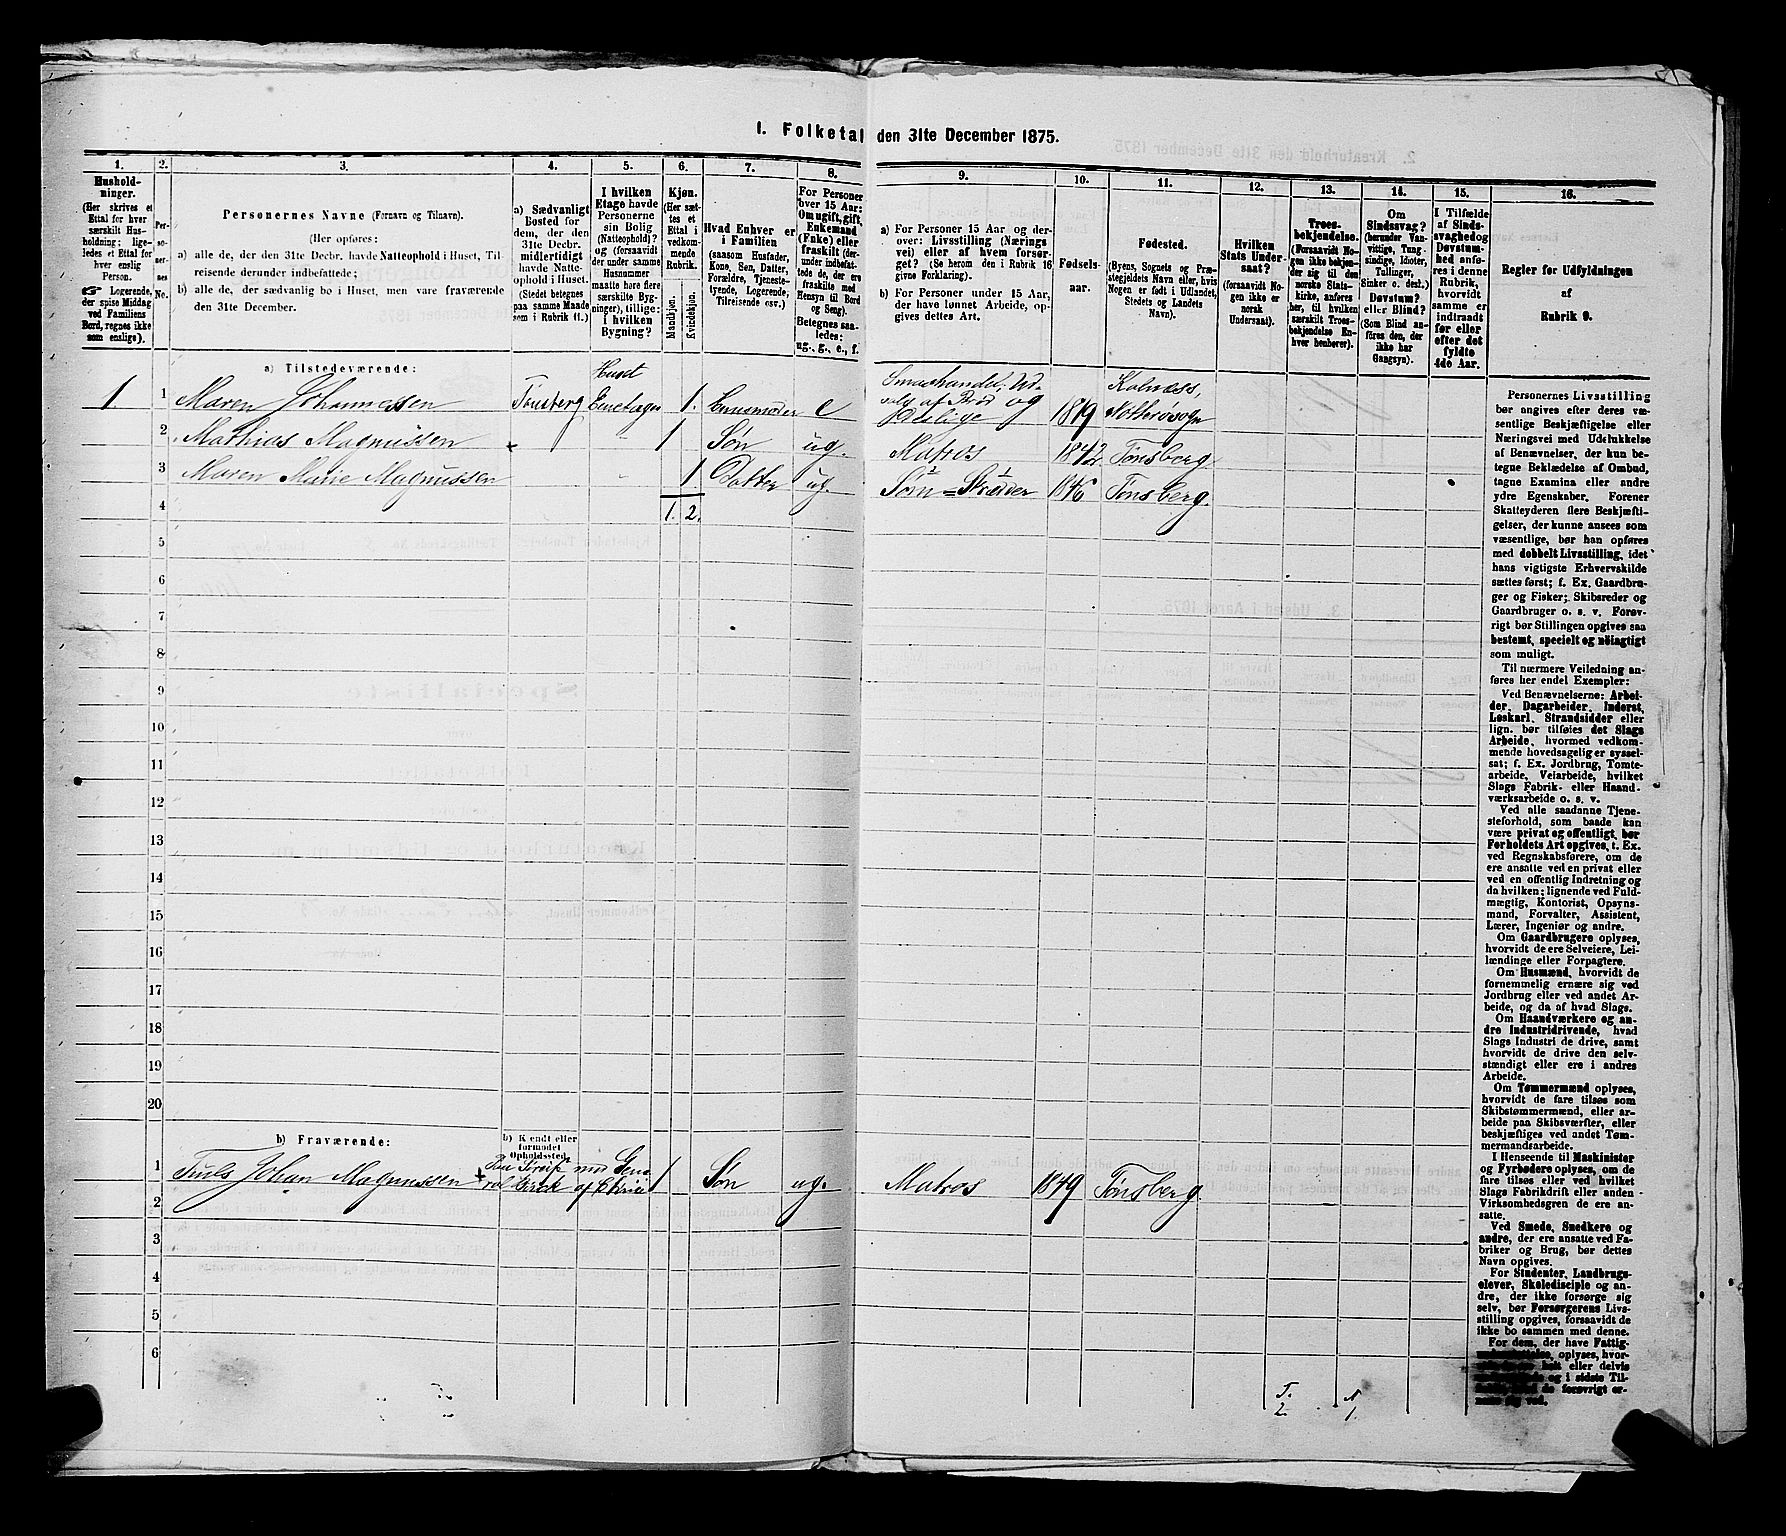 I. Folketal den 31te December 1875.
1.
Hushold-
ninger.
(Her skrives et
Ettal for hver
særskilt Hus-
holdning; lige-
ledes et Ettal for
hver enslig
Person.
☞ Logerende,
der spise Middag
ved Familiens
Bord, regnes ikke
som enslige).
2.
Per-
so-
ner-
nes
No.
3.
Personernes Navne (Fornavn og Tilnavn).
(Her opføres:
a) alle de, der den 31te Decbr. havde Natteophold i Huset, Til-
reisende derunder indbefattede;
b) alle de, der sædvanlig bo i Huset, men vare fraværende
den 31te December.
4.
a) Sædvanligt
Bosted for
dem, der den
31te Decbr.
midlertidigt
havde Natte-
ophold i Huset.
(Stedet betegnes
paa samme Maade
som i Rubrik 11.)
5.
I hvilken
Etage havde
Personerne
sin Bolig
(Natteophold)?
og (forsaavidt
der under samme
Husnummer
maatte høre flere
særskilte Byg-
ninger), tillige:
i hvilken
Bygning?
6.
Kjøn.
(Her sæt-
tes et
Ettal i
vedkom-
mende
Rubrik.
Mandkjøn.
Kvindekjøn.
7.
Hvad Enhver er
i Familien
(saasom Husfader,
Kone, Søn, Datter,
Forældre, Tjeneste-
tyende, Logerende,
Tilreisende osv.)
8.
For Personer
over 15 Aar:
Om ugift, gift,
Enkemand
(Enke) eller
fraskilt
(der-
under indbefat-
tede de, der ere
fraskilte med
Hensyn til Bord
og Seng).
Betegnes saa-
ledes:
ug., g., e., f.
9.
a) For Personer 15 Aar og der-
over: Livsstilling (Nærings
vei) eller af hvem forsør-
get? (Se herom den i Rubrik 16
givne Forklaring).
b) For Personer under 15 Aar,
der have lønnet Arbeide, op-
gives dettes Art.
10.
Fødsels-
aar.
11.
Fødested.
(Byens, Sognets og Præ-
stegjeldets Navn eller, hvis
Nogen er født i Udlandet,
Stedets og Landets
Navn).
12.
Hvilken
Stats Under-
saat?
(forsaavidt No-
gen ikke er
norsk
Undersaat).
13.
Troes-
bekjendelse.
(Forsaavidt No-
gen ikke bekjen-
der sig til den
norske Stats-
kirke, anføres
her, til hvilken
særskilt Troes-
bekjendelse En-
hver henhører).
14.
Om
Sindssvag?
(herunder Van-
vittige, Tung-
sindige, Idioter,
Tullinger,
Sinker o. desl.)
Døvstum?
eller Blind?
(Som Blind an-
føres den, der
ikke har
Gangsyn).
15.
I Tilfælde
af Sinds-
svaghed og
Døvstum-
hed anfø-
res i denne
Rubrik,
hvorvidt
samme er
indtraadt
før eller
efter det
fyldte
4de Aar.
16.
Regler for Udfyldningen
af
Rubrik 9.
a) Tilstedeværende:
1. 1 Maren Johannessen Tønsberg Huset Eenetages 1. Huusmoder e Smaahandel, Ud-
salg af Brød og 1819 Kalnæss, Nøtterøsogn
2 Mathias Magnussen 1 Søn ug. Matros 1842 Tønsberg
3 Maren Marie Magnussen 1. Datter ug. 1846 Tønsberg.
4 1. 2.
5
6
7
8
9
10
11
12
13
14
15
16
17
18
19
20
b) Fraværende:
b) Kjendt eller
formodet
Opholdssted.
1 Truls Johan Magnussen 1 Søn ug. Matros 1849 Tønsberg.
2
3
4
5
6
T. N
2 1.
Personernes Livsstilling
bør angives efter deres væ-
sentlige Beskjæftigelse eller
Næringsvei med Udelukkelse
af Benævnelser, der kun be-
tegne Beklædelse af Ombud,
tagne Examina eller andre
ydre Egenskaber. Forener
Skatteyderen flere Beskjæfti-
gelser, der kunne ansees som
væsentlige, bør han opføres
med dobbelt Livsstilling, idet
hans vigtigste Erhvervskilde
sættes først; f. Ex. Gaardbru-
ger og Fisker; Skibsreder og
Gaardbruger o. s. v. Forøv-
rigt bør Stillingen opgives saa
bestemt, specielt og nøiagtigt
som muligt.
Til nærmere Veiledning an-
føres her endel Exempler:
Ved Benævnelserne: Arbei-
der, Dagarbeider, Inderst,
Løskarl, Strandsidder eller
lign. bør tilføies det Slags
Arbeide, hvormed vedkom-
mende hovedsagelig er syssel-
sat; f. Ex. Jordbrug, Tomte-
arbeide, Veiarbeide, hvilket
Slags Fabrik- eller Haand-
værksarbeide o. s. v.
Ved alle saadanne Tjene-
steforhold, som baade kan
være privat og offentligt, bør
Forholdets Art opgives, t. Ex.
ved Regnskabsførere, om de
ere ansatte ved en privat eller
ved en offentlig Indretning og
da hvilken; lignende ved Fuld-
mægtig, Kontorist, Opsyns-
mand, Forvalter, Assistent,
Lærer, Ingeniør og andre.
Om Gaardbrugere oplyses,
hvorvidt de ere Selveiere, Lei-
lændinge eller Forpagtere.
Om Husmænd, hvorvidt de
fornemmelig ernære sig ved
Jordbrug eller ved andet Ar-
beide, og da af hvad Slags.
Om Haandværkere og an-
dre Industridrivende, hvad
Slags Industri de drive, samt
hvorvidt de drive den selv-
stændigt eller ere i andres
Arbeide.
Om Tømmermænd oplyses,
hvorvidt de fare tilsøs som
Skibstømmermænd, eller ar-
beide paa Skibsværfter, eller
beskjæftiges ved andet Tøm-
mermandsarbeide.
I Henseende til Maskinister
og Fyrbødere oplyses, om de
fare tilsøs eller ved hvilket
Slags Fabrikdrift eller anden
Virksomhedsgren de ere an-
satte.
Ved Smede, Snedkere og
andre, der ere ansatte ved Fa-
briker og Brug, bør dettes
Navn opgives.
For Studenter, Landbrugs-
elever, Skoledisciple og an-
dre, der ikke forsørge sig
selv, bør Forsørgerens Livs-
stilling opgives, forsaavidt de
ikke bo sammen med denne.
For dem, der have Fattig-
oplyses, hvor-
helt eller delvis
og i sidste Til-
de forøvrigt er-
nære sig ved.